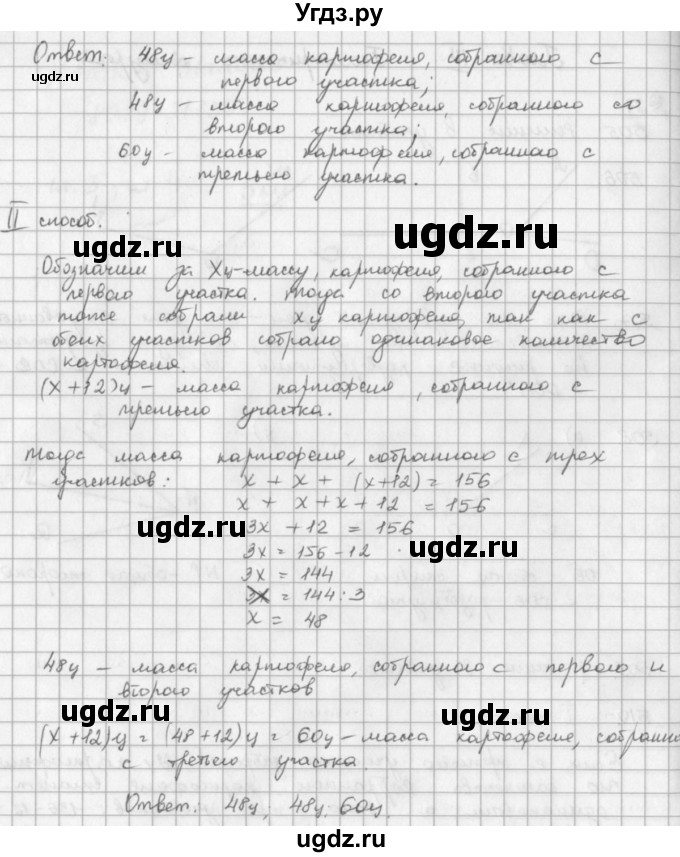 Угдз.ру
Ответ: 48ц – масса картофеля, собранного с
первого участка;
48ц – масса картофеля, собранного со
второго участка;
60ц – масса картофеля, собранного с
третьего участка.
II способ.
Обозначим за Xц – массу, картофеля, собранного с
первого участка. Тогда со второго участка
тоже собрали xц картофеля, так как с
обеих участков собрано одинаковое количество
картофеля.
(x+12)ц – масса картофеля, собранного с
третьего участка.
Тогда масса картофеля, собранного с трех
участков: x + x + (x+12) = 156
x + x + x + 12 = 156
3x + 12 = 156
3x = 156 - 12
3x = 144
3x = 144 : 3
x = 48
48ц – масса картофеля, собранного с первого и
второго участков
(x+12)ц = (48+12)ц = 60ц – масса картофеля, собранно
с третьего участка
Ответ: 48ц; 48ц; 60ц.
ugdz.ru
ugdz.ru
ugdz.ru
ugdz.ru
ugdz.ru
ugdz.ru
ugdz.ru
ugdz.ru
ugdz.ru
ugdz.ru
ugdz.ru
ugdz.ru
ugdz.ru